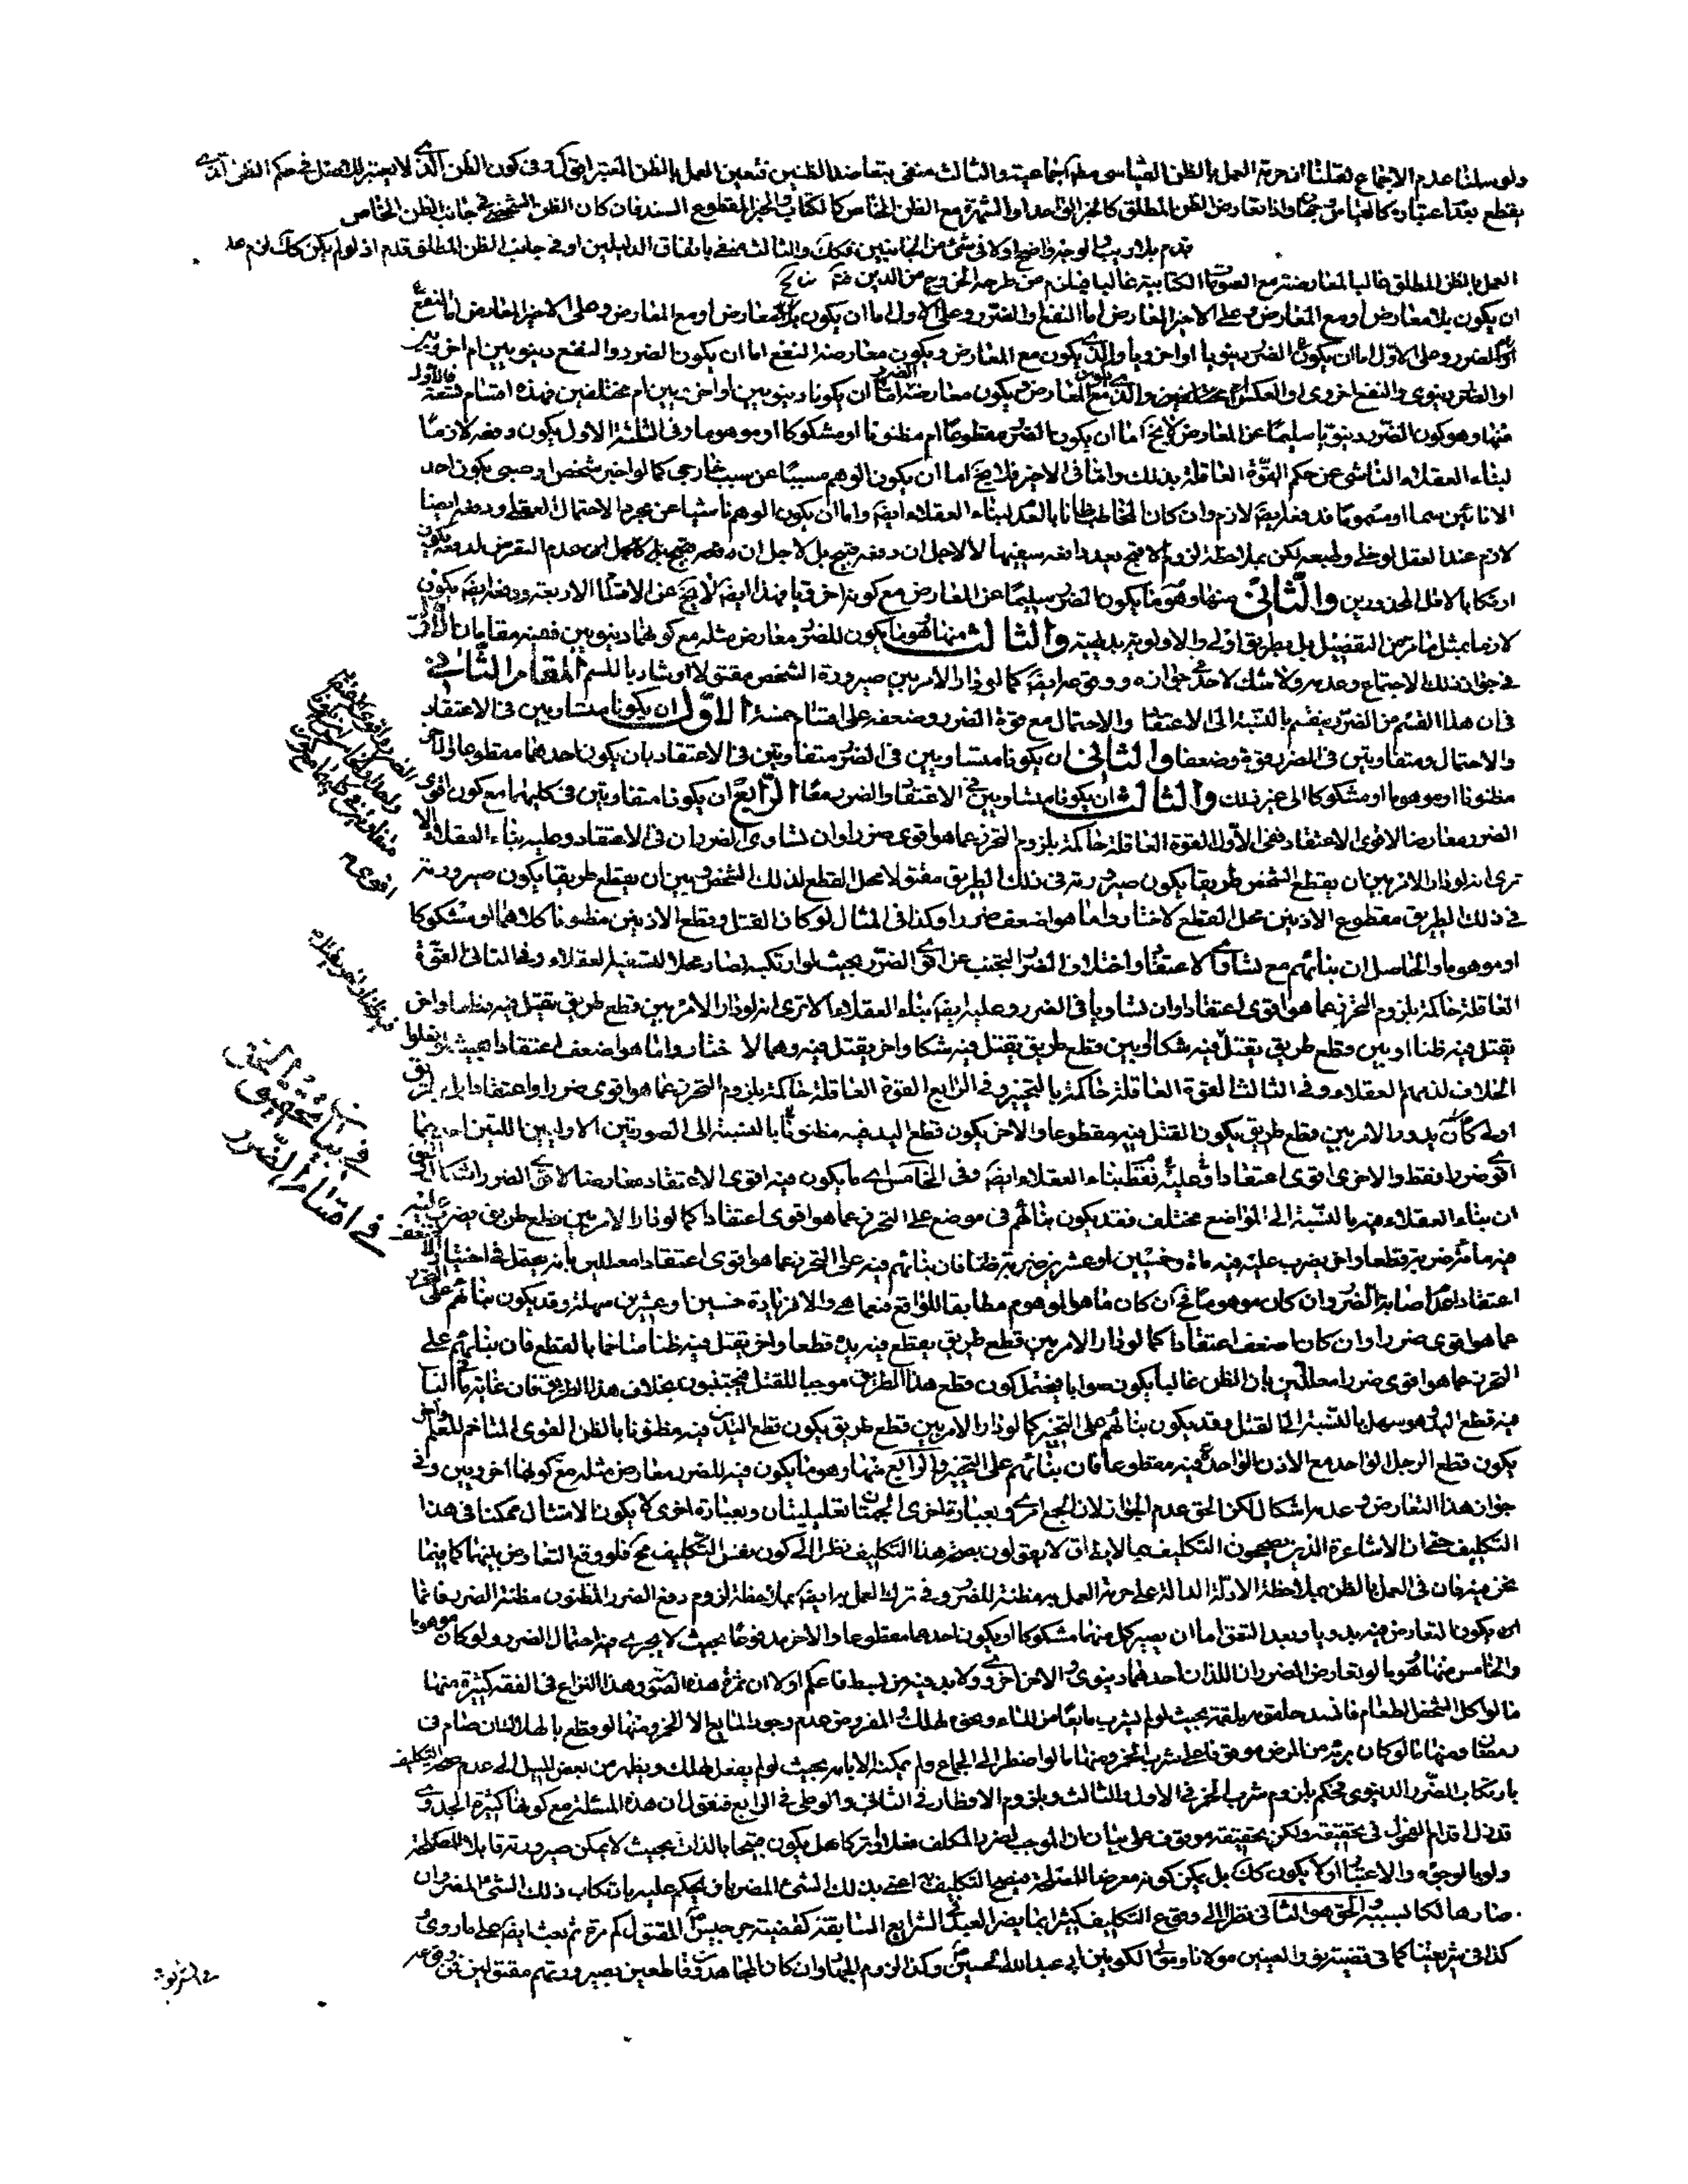 ولو سلمنا عدم الاجماع لقلنا ان حرمة العمل بالظن القياسى اجماعية والثالث منفى بتعاضد الظنين فتعين العمل بالظن المعتبر فى كون الظن الذى لا يعتبر فى حكم الظن الذى
بقطع بعدم اعتباره كالقياس واذا تعارض الظن المطلق كالخبر الواحد او الشهرة مع الظن الخاص كالكتاب والخبر المقطوع السند فان كان الظن الشخصى فى جانب الظن الخاص
قدم بلا ريب والوجه واضح اولا فى شئ من الجانبين فكك والثالث منفى باتفاق الدليلين او فى جانب الظن المطلق قدم اذ لو لم يكن كك لزم عدم
العمل بالظن المطلق غالبا لمعارضته مع العمومات الكتابية غالبا فيلزم من طرحه الخروج من الدين
ان يكون بلا معارض او مع المعارض وعلى الاخير المعارض اما النفع او الضرر وعلى الاول اما ان يكون بلا معارض او مع المعارض وعلى الاخير المعارض اما النفع
او الضرر وعلى الاول اما ان يكون الضرر دنيويا او اخرويا والذى يكون مع المعارض ويكون معارضه النفع اما ان يكون الضرر والنفع دنيويين ام اخرويين
او الضرر دنيوى والنفع اخروى او العكس والذى مع المعارض يكون معارضه الضرر اما ان يكونا دنيويين او اخرويين ام مختلفين فهذه اقسام تسعة فالاول
منها وهو كون الضرر دنيويا سليما عن المعارض لا يخ اما ان يكون الضرر مقطوعا ام مظنونا او مشكوكا او موهوما وفى الثلثة الاول يكون دفعه لازما
لبناء العقلاء الناشى عن حكم القوة العاقلة بذلك واما فى الاخير فلا يخ اما ان يكون الوهم مسببا عن سبب خارجى كما لو اخبر شخص او صبى بكون احد
الانائين سما او مسموما فدفعه ايضا لازم وان كان المخاطب ظانا بالعدم لبناء العقلاء ايضا واما ان يكون الوهم ناشيا عن مجرد الاحتمال العقلى ودفعه ايضا
لازم عند العقل لو خلى وطبعه لكن بملاحظة لزوم الاقبح يعد دافعه سفيها لا لاجل ان دفعه قبيح بل لاجل ان دفعه قبيح بل لاجل ان عدم التعرض لدفعه يكون
ارتكابا لاقل المحذورين والثانى منها وهو ما يكون الضرر سليما عن المعارض مع كونه اخرويا فهذا ايضا لا يخ عن الاقسام الاربعة ودفعه ايضا يكون
لازما بمثل ما مر من التفصيل بل بطريق اولى والاولوية بديهية والثالث منها هو ما يكون للضرر معارض مثله مع كونهما دنيويين ففيه مقامان الاول
فى جواز ذلك الاجتماع وعدمه ولا شك لاحد فى جوازه ووقوعه ايضا كما لو دار الامر بين صيرورة الشخص مقتولا او شاربا للسم المقام الثانى
فى ان هذا القسم من الضرر ينقسم بالنسبة الى الاعتقاد والاحتمال مع قوة الضرر وضعفه على اقسام خمسة الاول ان يكونا متساويين فى الاعتقاد
والاحتمال ومتفاوتين فى الضرر قوة وضعفا والثانى ان يكونا متساويين فى الضرر متفاوتين فى الاعتقاد بان يكون احدهما مقطوعا والاخر
مظنونا او موهوما او مشكوكا الى غير ذلك والثالث ان يكونا متساويين فى الاعتقاد والضرر معا الرابع ان يكونا متفاوتين فى كليهما مع كون اقوى
الضرر معارضا لاقوى الاعتقاد ففى الاول القوة العاقلة حاكمة بلزوم التحرز عما هو اقوى ضررا وان تساوى الضرران فى الاعتقاد وعليه بناء العقلاء الا
ترى انه لو دار الامر بين ان يقطع الشخص طريقا يكون صيرورته فى ذلك الطريق مقتولا محل القطع لذلك الشخص وبين ان يقطع طريقا يكون صيرورته
فى ذلك الطريق مقطوع الاذنين محل القطع لاختار ما هو اضعف ضررا وكذا فى المثال لو كان القتل وقطع الاذنين مظنونا كلاهما او مشكوكا
او موهوما والحاصل ان بنائهم مع تساوى الاعتقاد واختلاف الضرر التجنب عن اقوى الضرر بحيث لو ارتكبه لصار محلا لتسفيه العقلاء وفى الثانى القوة
العاقلة حاكمة بلزوم التحرز عما هو اقوى اعتقادا وان تساويا فى الضرر وعليه ايضا بناء العقلاء الا ترى انه لو دار الامر بين قطع طريق يقتل فيه علما واخر
يقتل فيه ظنا او بين قطع طريق يقتل فيه ظنا وبين قطع طريق يقتل فيه شكا واخر يقتل فيه وهما لاختاروا ما هو اضعف اعتقادا بحيث لو فعلوا
الخلاف لذمهم العقلاء وفى الثالث القوة العاقلة حاكمة بالتخيير وفى الرابع القوة العاقلة حاكمة بلزوم التحرز عما هو اقوى ضررا واعتقادا بل بطريق
اولى كان يدور الامر بين قطع طريق يكون القتل فيه مقطوعا والاخر يكون قطع اليد فيه مظنونا بالنسبة الى الصورتين الاوليين اللتين احديهما
اقوى ضررا فقط والاخرى اقوى اعتقادا فقط وعليه بناء العقلاء ايضا وفى الخامس اى ما يكون فيه اقوى الاعتقاد معارضا لاقوى الضرر اشكال
ان بناء العقلاء فيه بالنسبة الى المواضع مختلف فقد يكون بنائهم فى موضع على التحرز عما هو اقوى اعتقادا كما لو دار الامر بين قطع طريق يضرب عليه
فيه مأة ضربة قطعا واخر يضرب عليه فيه مأة وخمسين او عشرين ضربة ظنا فان بنائهم فيه على التحرز عما هو اقوى اعتقادا معللين بانه يحتمل فى اختيار الاضعف
اعتقادا عدم اصابة الضرر وان كان موهوما فح ان كان ما هو الموهوم مطابقا للواقع فنعما هى والا فزيادة خمسين او عشرين سهلة وقد يكون بنائهم على التحرز
عما هو اقوى ضررا وان كان اضعف اعتقادا كما لو دار الامر بين قطع طريق يقطع فيه يده قطعا واخر يقتل فيه ظنا متاخما بالقطع فان بنائهم على
التحرز عما هو اقوى ضررا معللين بان الظن غالبا يكون صوابا فيحتمل كون قطع هذا الطريق موجبا للقتل فيجتنبون بخلاف هذا الطريق فان غاية ما فى الباب
فيه قطع اليد وهو سهل بالنسبة الى القتل وقد يكون بنائهم على التخيير كما لو دار الامر بين قطع طريق يكون قطع اليدين فيه مظنونا بالظن القوى المتاخم للعلم واخر
يكون قطع الرجل الواحد مع الاذن الواحدة فيه مقطوعا فان بنائهم على التخيير والرابع منها وهو ما يكون فيه للضرر معارض مثله مع كونهما اخرويين وفى
جواز هذا التعارض وعدمه اشكال لكن الحق عدم الجواز لان الجمع وبعبارة اخرى الجهتان تعليليتان وبعبارة اخرى لا يكون الامتثال ممكنا فى هذا
التكليف حتى ان الاشاعرة الذين يصححون التكليف بما لا يطاق لا يقولون بصحة هذا التكليف نظرا الى كون نفس التكليف مح فلو وقع التعارض بينهما كما فيما
نحن فيه فان فى العمل بالظن بملاحظة الادلة الدالة على حرمة العمل به مظنة للضرر وفى ترك العمل به ايضا بملاحظة لزوم دفع الضرر المظنون مظنة الضرر فاما
ان يكون التعارض فيه بدويا وبعد التعمق اما ان يصير كل منهما مشكوكا او يكون احدهما مقطوعا والاخر مدفوعا بحيث لا يجرى فيه احتمال الضرر ولو كان موهوما
والخامس منها هو ما لو تعارض الضرران اللذان احدهما دنيوى والاخر اخروى ولا بد فيه من بسط فاعلم اولا ان ثمرة هذه الصورة وهذا النزاع فى الفقه كثيرة منها
ما لو اكل الشخص الطعام فانسد حلقه بلقمة بحيث لو لم يشرب مايعا من الماء ونحوه لهلك والمفروض عدم وجود المايع الا الخمر ومنها لو قطع بالهلاك ان صام فى
رمضان ومنها ما لو كان برئه من المرض موقوفا على شرب الخمر ومنها ما لو اضطر الى الجماع ولم يمكنه الا بامه بحيث لو لم يفعل لهلك ويظهر من بعض الميل الى عدم صحة التكليف
بارتكاب الضرر الدنيوى فحكم بلزوم شرب الخمر فى الاول والثالث وبلزوم الافطار فى الثانى والوطى فى الرابع فنقول ان هذه المسئلة مع كونها كثيرة الجدوى
قد زل اقدام الفحول فى تحقيقه ولكن تحقيقه موقوف على بيان ان الموجب لضرر المكلف فعلا او تركا هل يكون قبيحا بالذات بحيث لا يمكن صيرورته قابلا للمصلحة
ولو بالوجوه والاعتبار او لا يكون كك بل يمكن كونه معرضا للمصلحة فيصح التكليف اعنى بذلك الشئ المضر بان يحكم عليه بارتكاب ذلك الشئ المضر وان
صار هالكا بسببه الحق هو الثانى نظرا الى وقوع التكليف كثيرا بما يضر العبد فى الشرايع السابقة كقضية جرجيس المقتول كم مرة ثم بعث ايضا على ما روى
كذا فى شريعتنا كما فى قضية مولانا ومولى الكونين ابى عبد الله الحسين وكذا لزوم الجهاد وان كان المجاهدون قاطعين بصيرورتهم مقتولين
فى بيان تحقيق الحق
فى اقسام الضرر